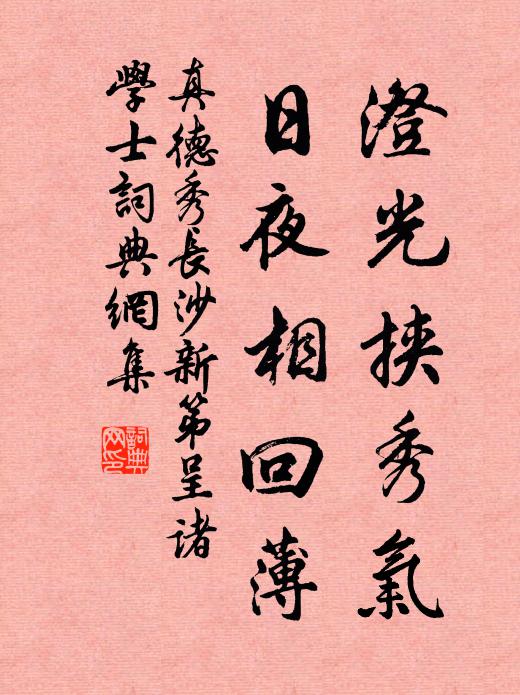 澄光挾秀氣
日夜相回薄
真德秀長沙新第呈諸
學士詞典網集
詞典
網印